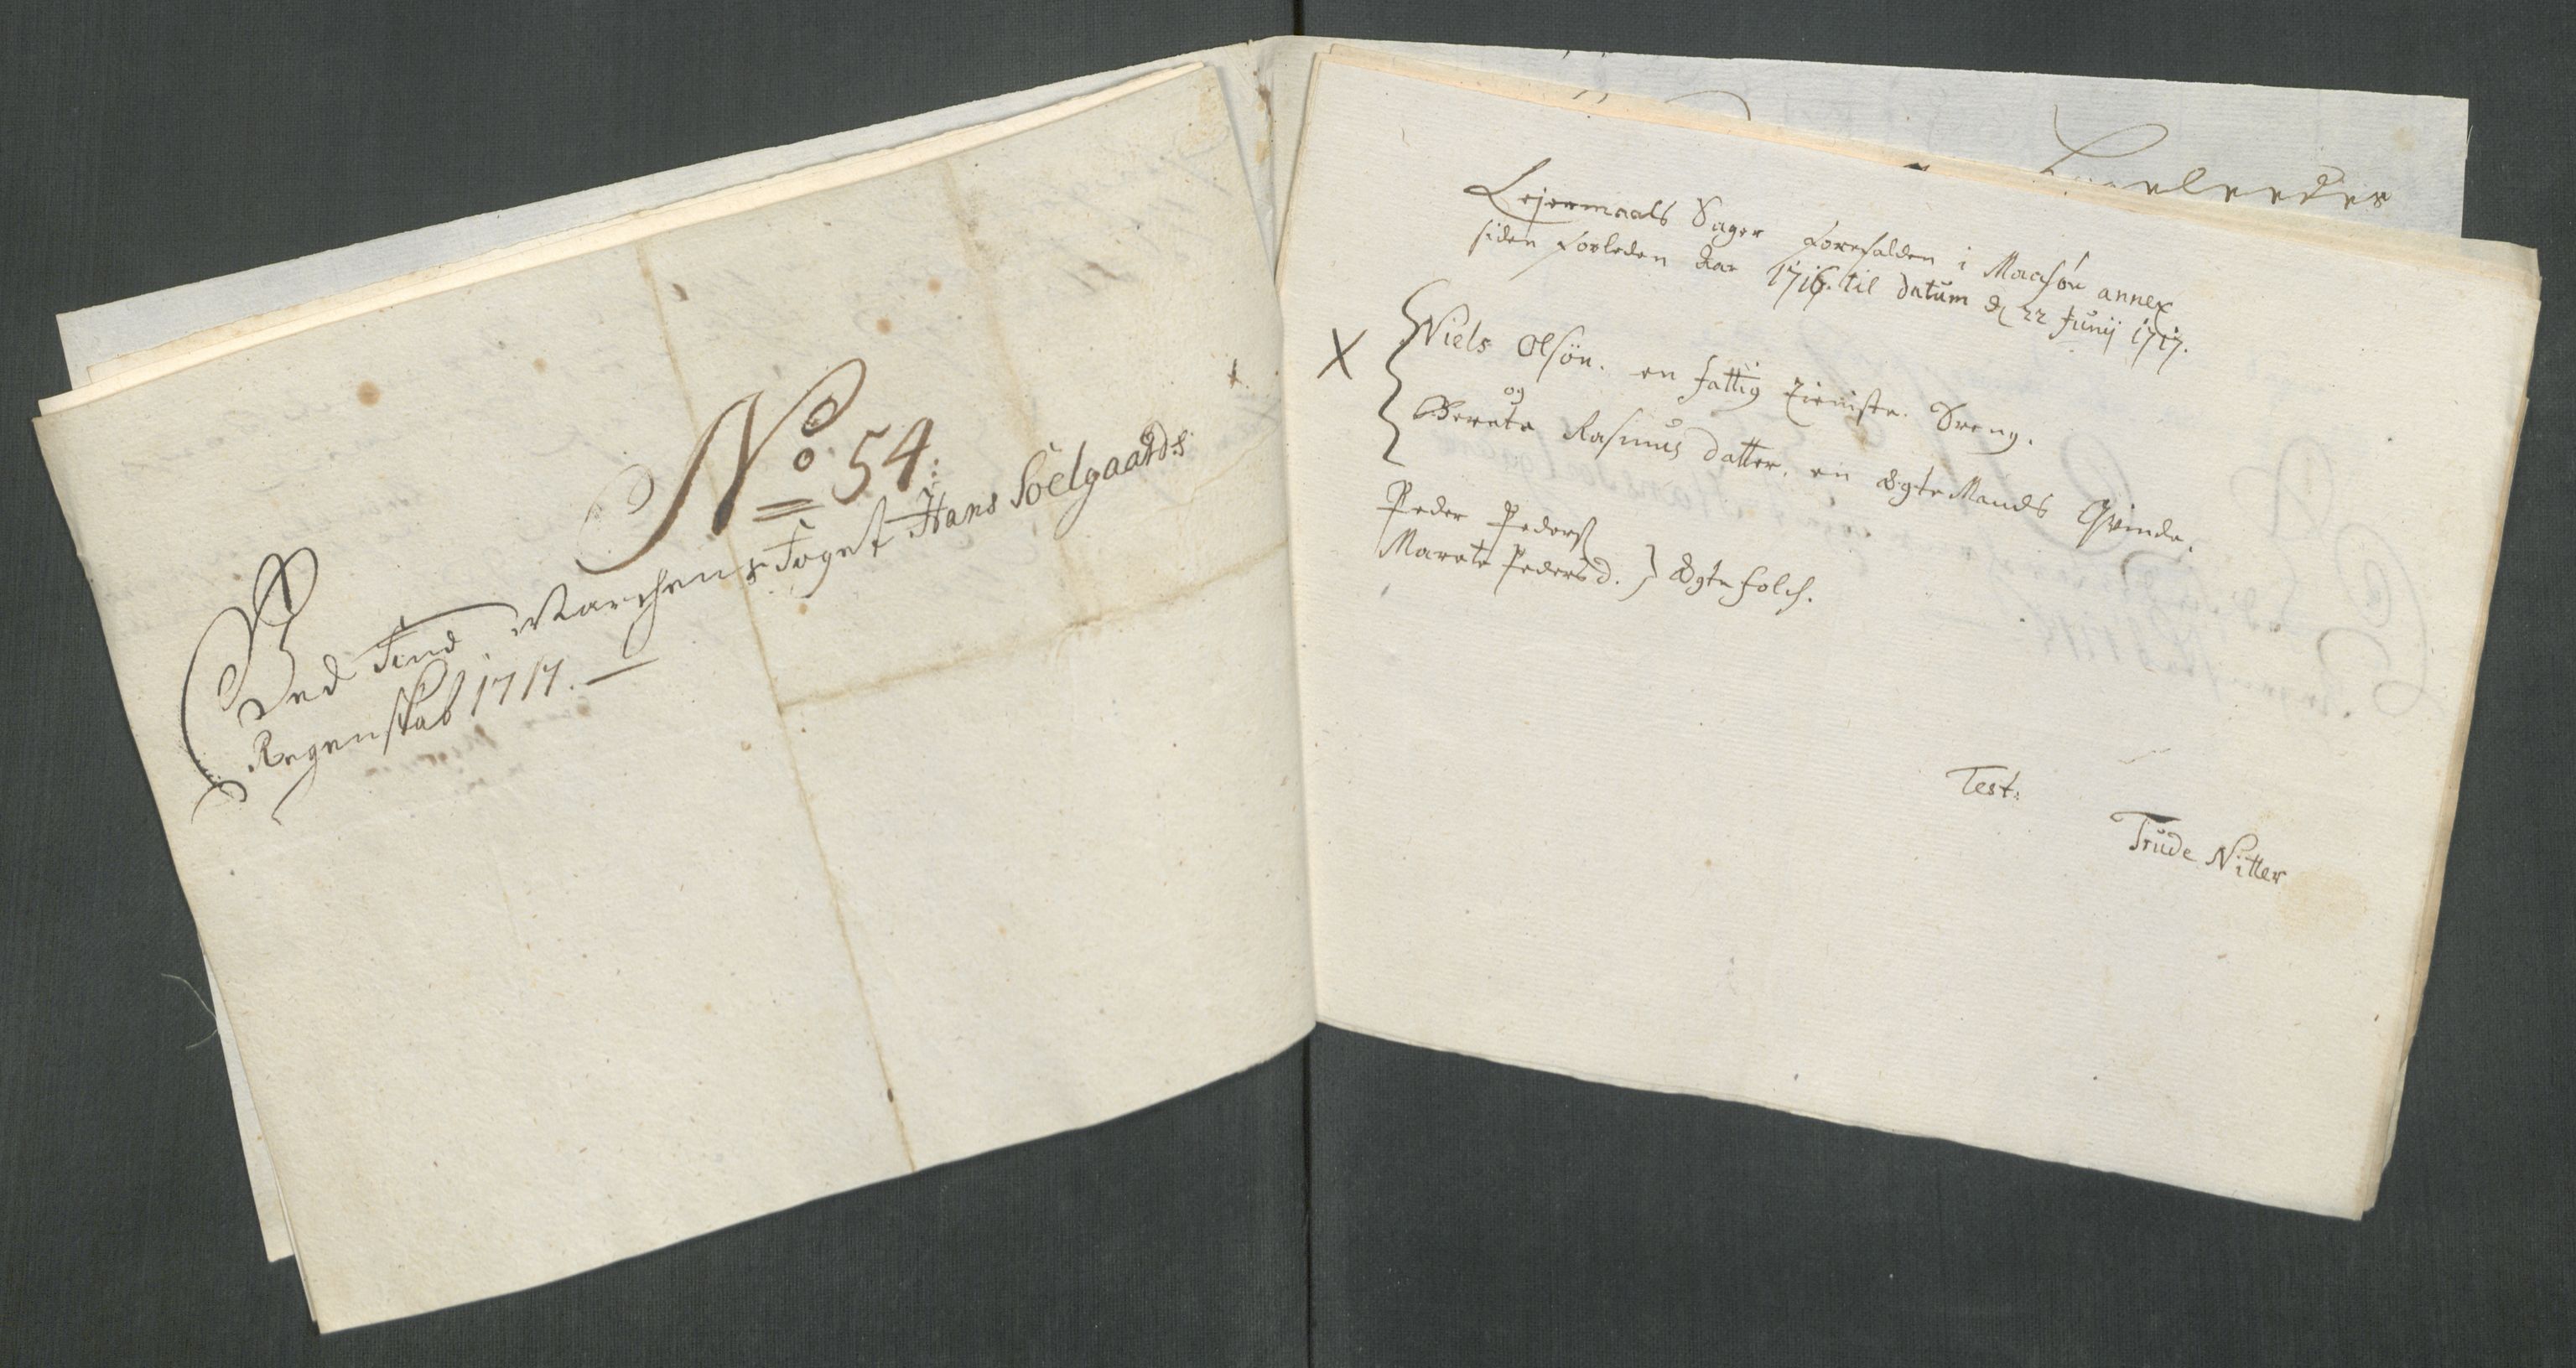 No 54:
Ved Find Marchens Foget Hans Soelgaards
Regenskab 1717.
Lejermaals Sager forefalden i Maasøe annex
siden forleden Aar 1716. til datum d 22 Junij 1717.
X
Niels Olsøn. en fattig tieniste Dreng.
og
Berete Rasmus datter. en ægte Mands Qvinde.
Peder Peders
Marete Pedersd. } Ægte folch.
Test:
Trude Nitter